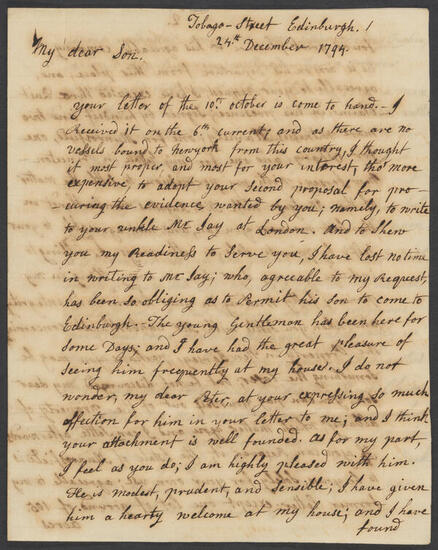 Tobago-Street Edinburgh. /
24.th December 1794.
My dear Son.
your letter of the 10th october is come to hand. - I
Received it on the 6th current, and as there are no
vessels bound to Newyork from this country, I thought
it most proper, and most for your interest, tho' more
expensive, to adopt your second proposal for pro-
-curing the evidence wanted by you; namely, to write
to your unkle Mr Jay at London. And to Shew
you my Readiness to Serve you, I have lost no time
in writing to Mr Jay; who, agreable to my Request,
has been so obliging as to Permit his son to come to
Edinburgh. The young Gentleman has been here for
Some Days; and I have had the great pleasure of
seeing him frequently at my house. I do not
wonder, my dear Peter, at your expressing so much
affection for him in your letter to me; and I think
your attachment is well founded. as for my part,
I feel as you do; I am highly pleased with him.
He is modest, prudent, and sensible; I have given
him a hearty welcome at my house; and I have
found